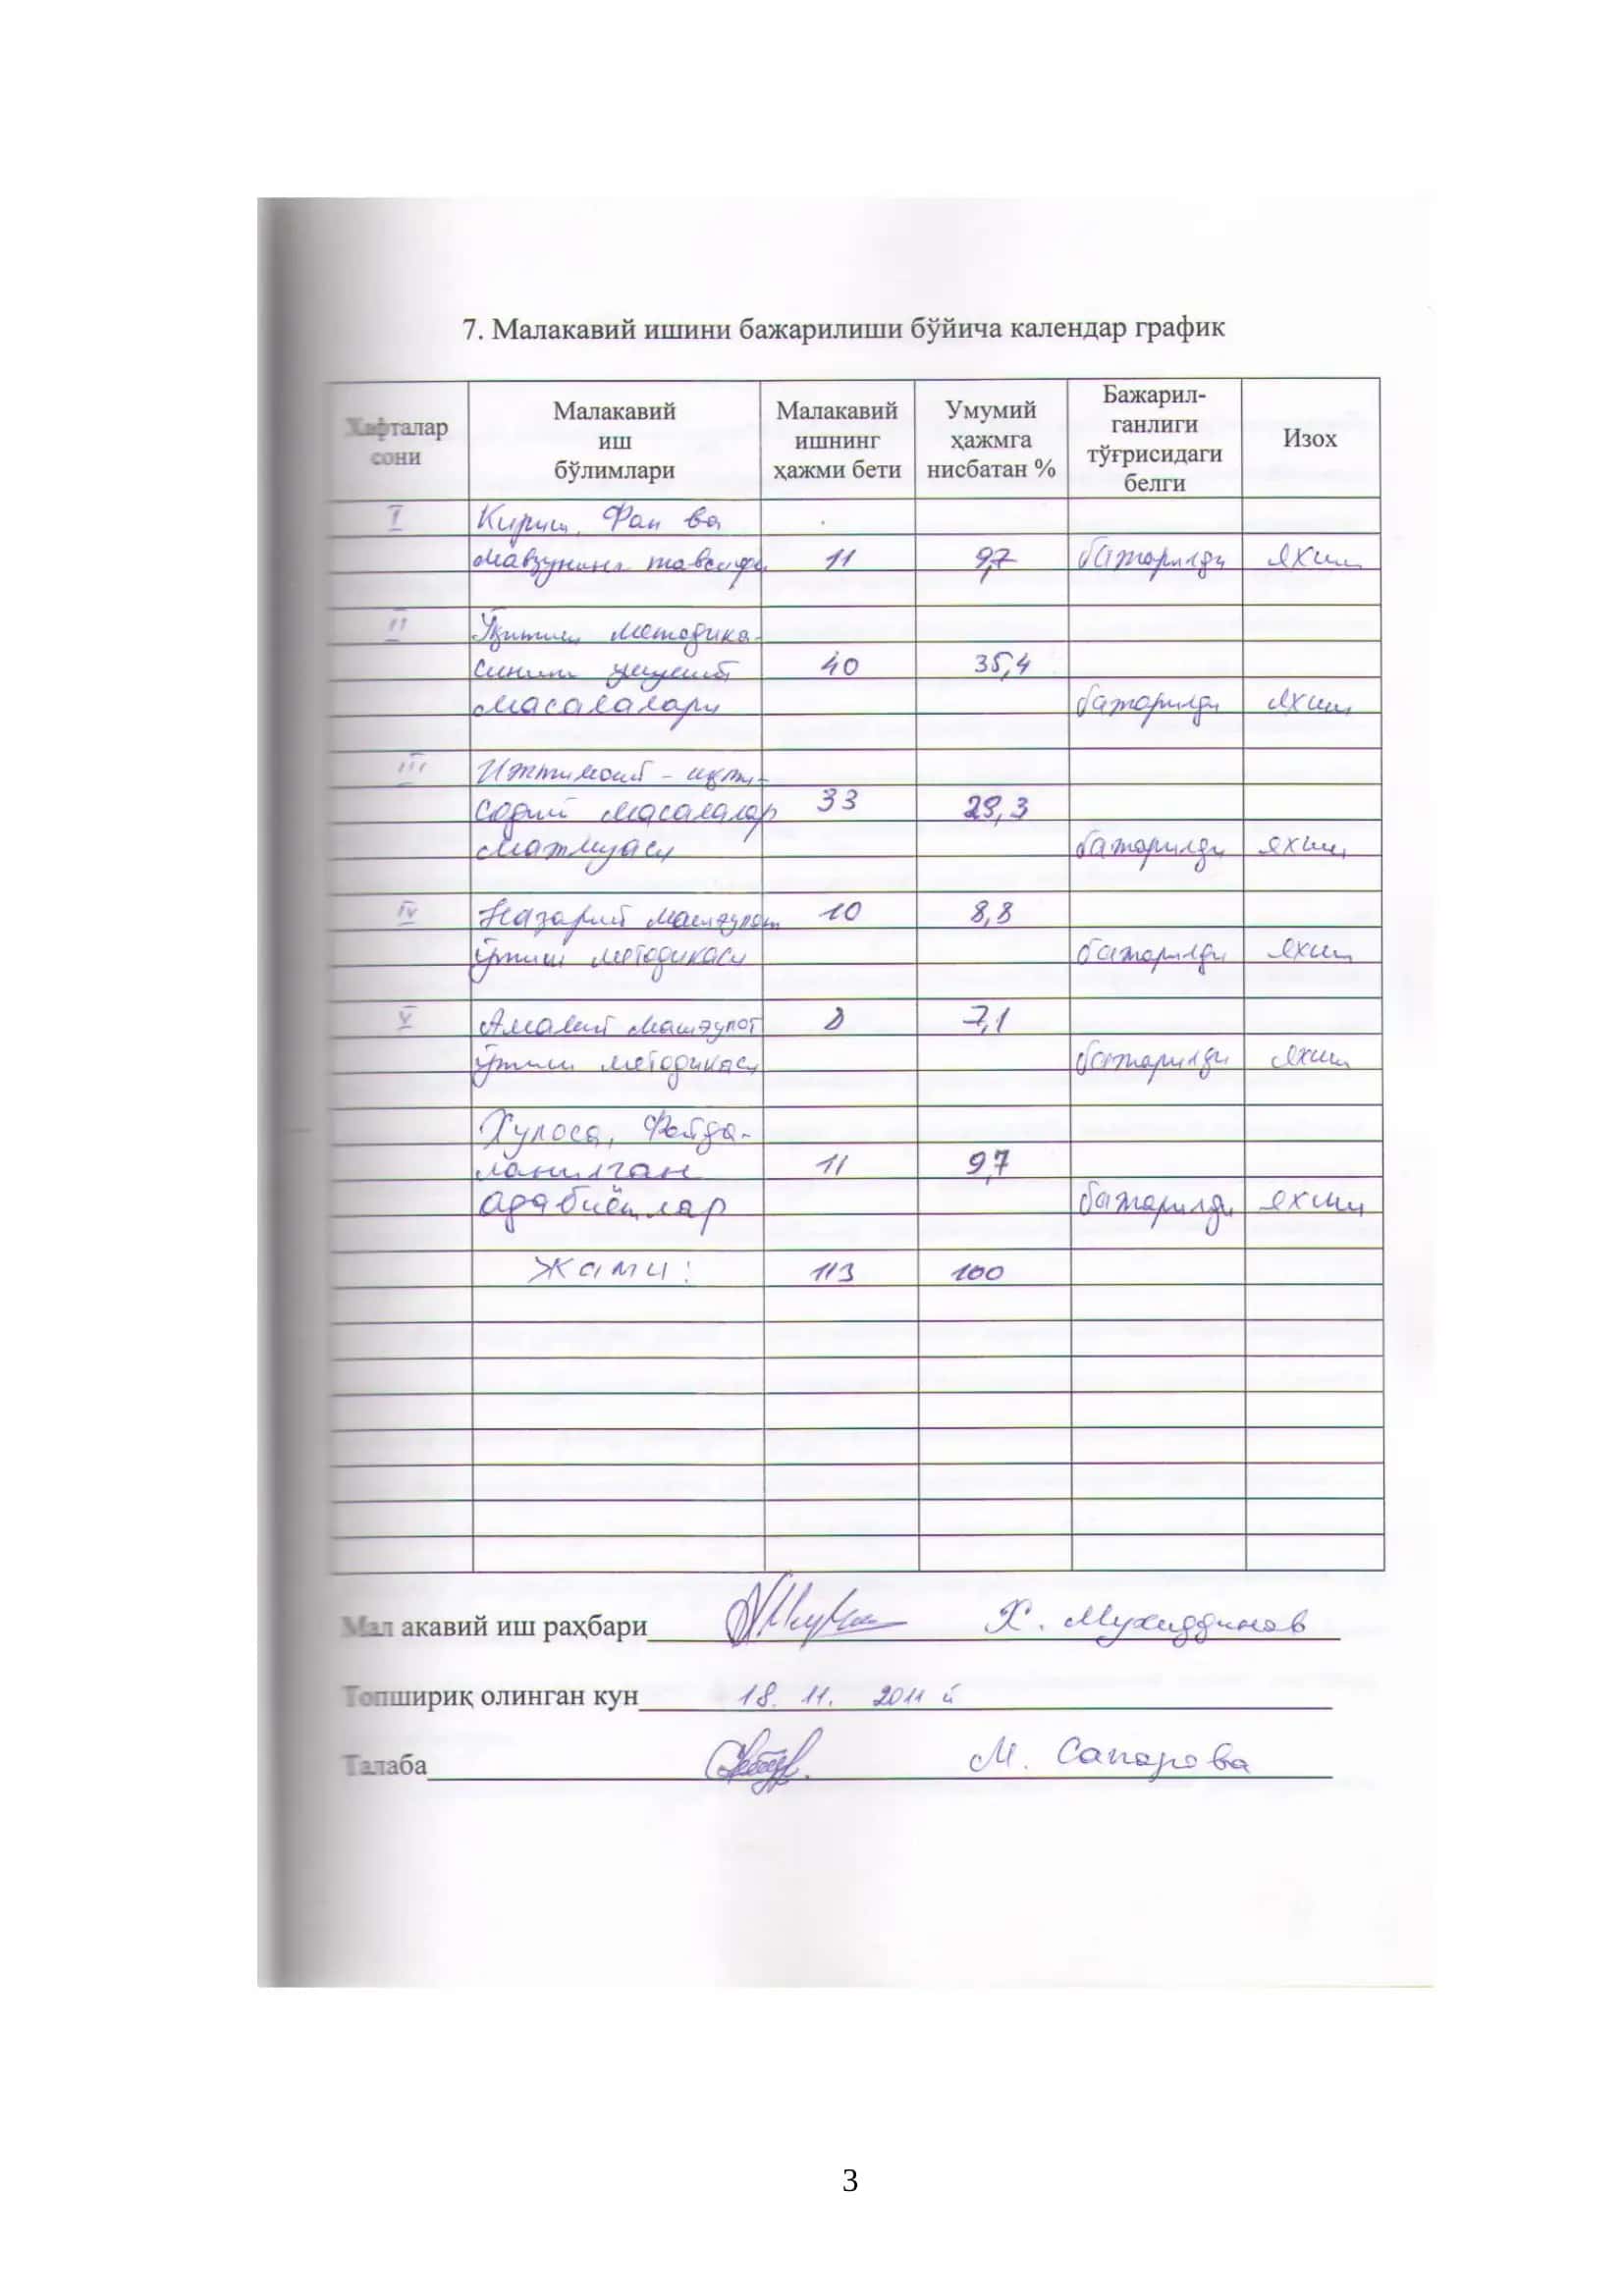 7. Малакавий ишини бажарилиши бўйича календар график
Хафталар сони | Малакавий иш бўлимлари | Малакавий ишнинг ҳажми бети | Умумий ҳажмга нисбатан % | Бажарил-ганлиги тўғрисидаги белги | Изох
I Кириш, Фан ва
мавзунинг тавсифи 11 9,7 бажарилди яхши
II Ўқитиш методика-
сининг умумий 40 35,4
масалалари бажарилди яхши
III Ижтимоий - иқти-
содий масалалар 33 29,3
мажмуаси бажарилди яхши
IV Назарий машғулот 10 8,8
ўтиш методикаси бажарилди яхши
V Амалий машғулот 8 7,1
ўтиш методикаси бажарилди яхши
Хулоса, Фойда-
ланилган 11 9,7
адабиётлар бажарилди яхши
Жами: 113 100
Мал акавий иш раҳбари Х. Мухиддинов
Топшириқ олинган кун 18. 11. 2011 й
Талаба М. Сапарова
3